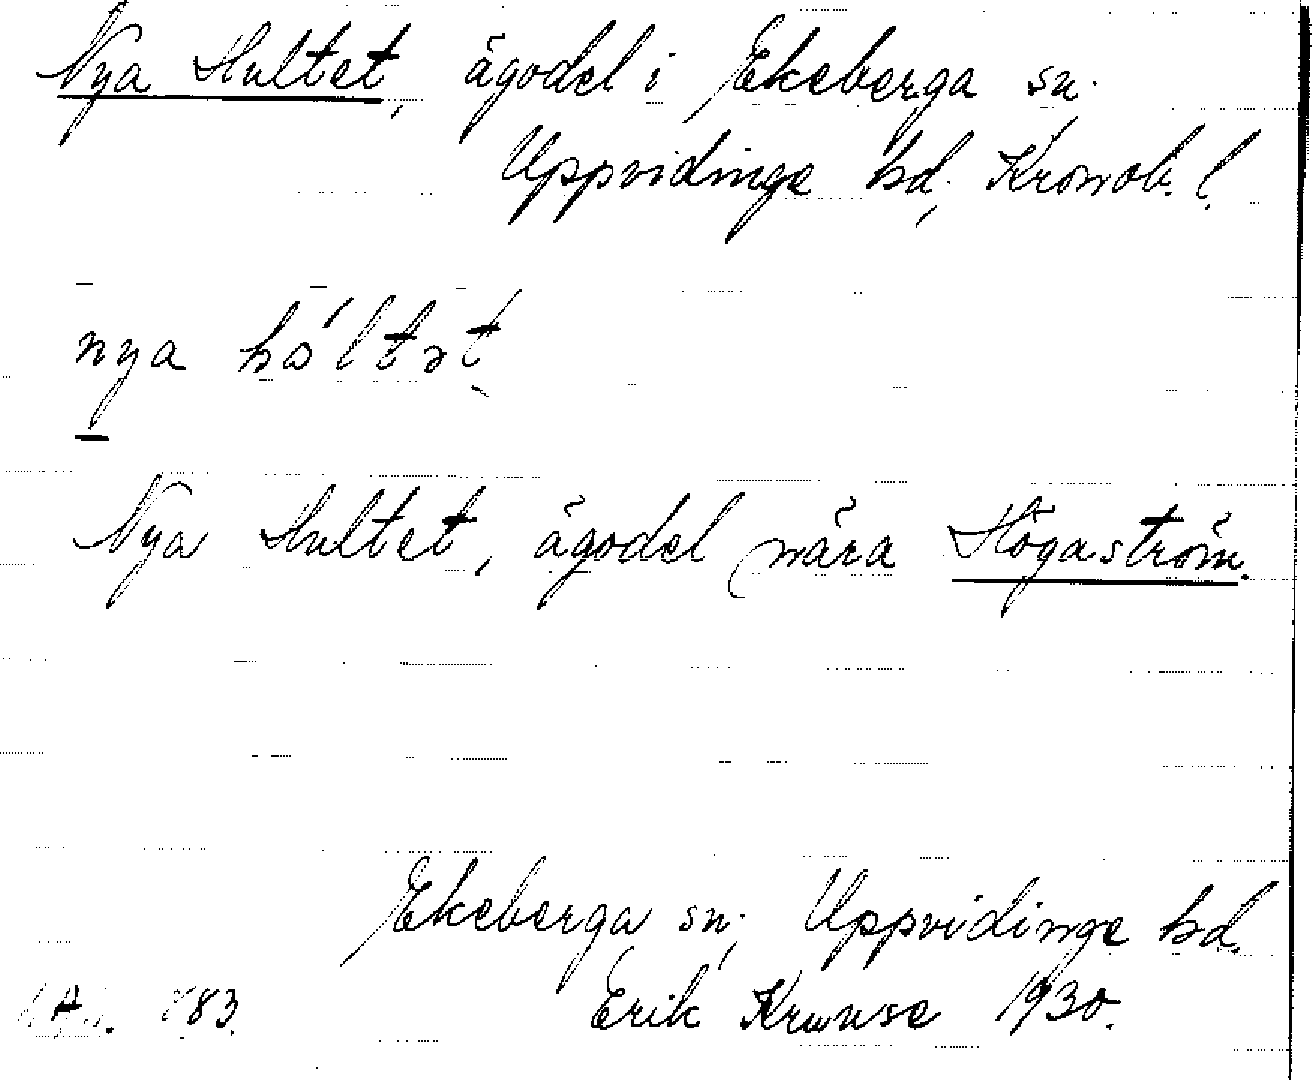 Nya Hultet, ägodel i Ekeberga sn.
Uppvidinge hd, Kronob. l.
nya hól tət
Nya Hultet, ägodel nära Högaström.
Ekeberga sn, Uppvidinge hd.
83. Erik Kruuse 1930.